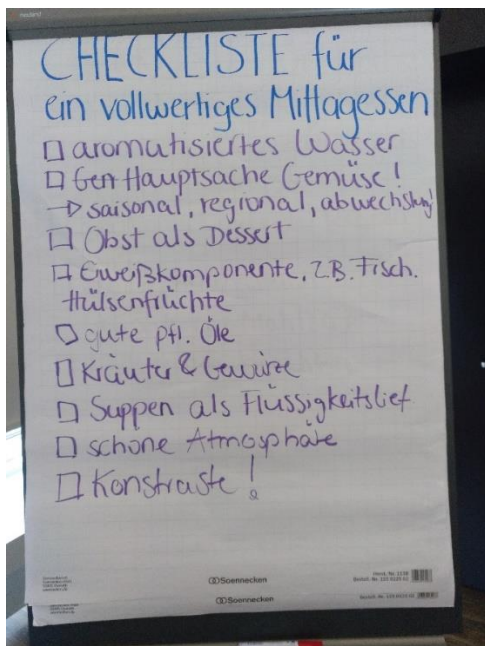 CHECKLISTE für
ein vollwertiges Mittagessen
aromatisiertes Wasser
Hauptsache Gemüse!
saisonal, regional, abwechslung
Obst als Dessert
Eiweißkomponente, z.B. Fisch.
Hülsenfrüchte
gute pfl. Öle
Kräuter & Gewürze
Suppen als Flüssigkeitslief.
schöne Atmosphäre
Konstraste!
Soennecken
Soennecken